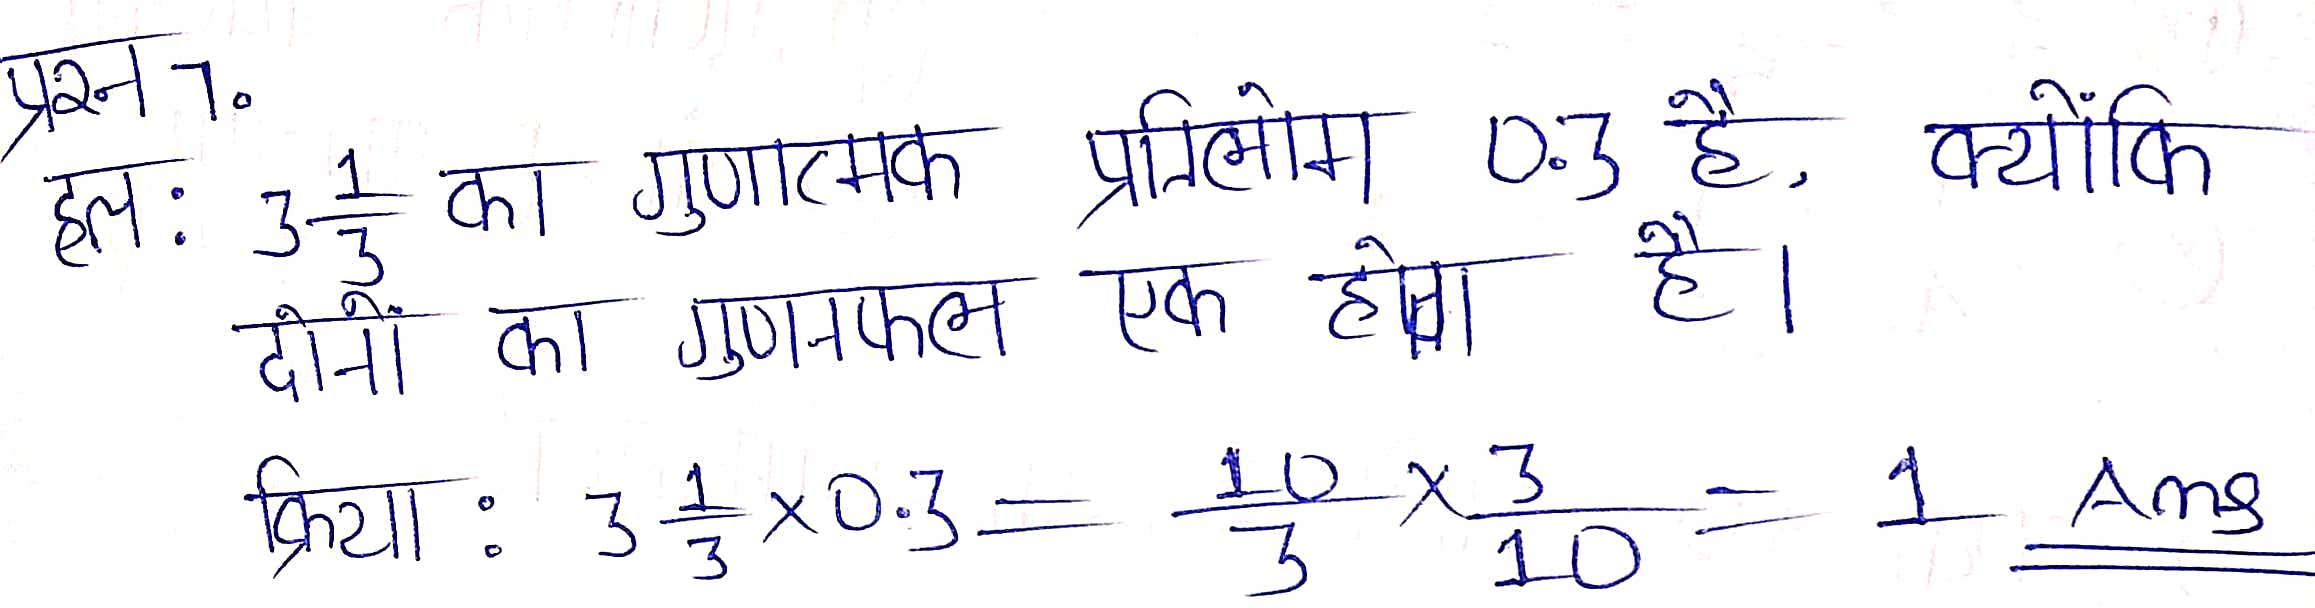 प्रश्न 7.
हल: 3 1/3 का गुणात्मक प्रतिलोम 0.3 है, क्योंकि
दोनों का गुणनफल एक होता है।
क्रिया : 3 1/3 × 0.3 = 10/3 × 3/10 = 1 Ans